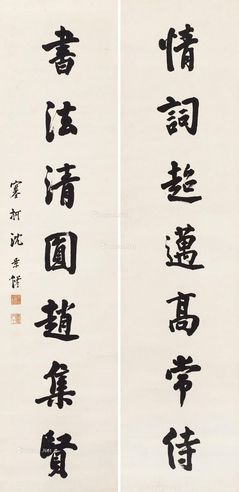 情詞超邁高常侍
書法清圓趙集賢
寒柯沈景修